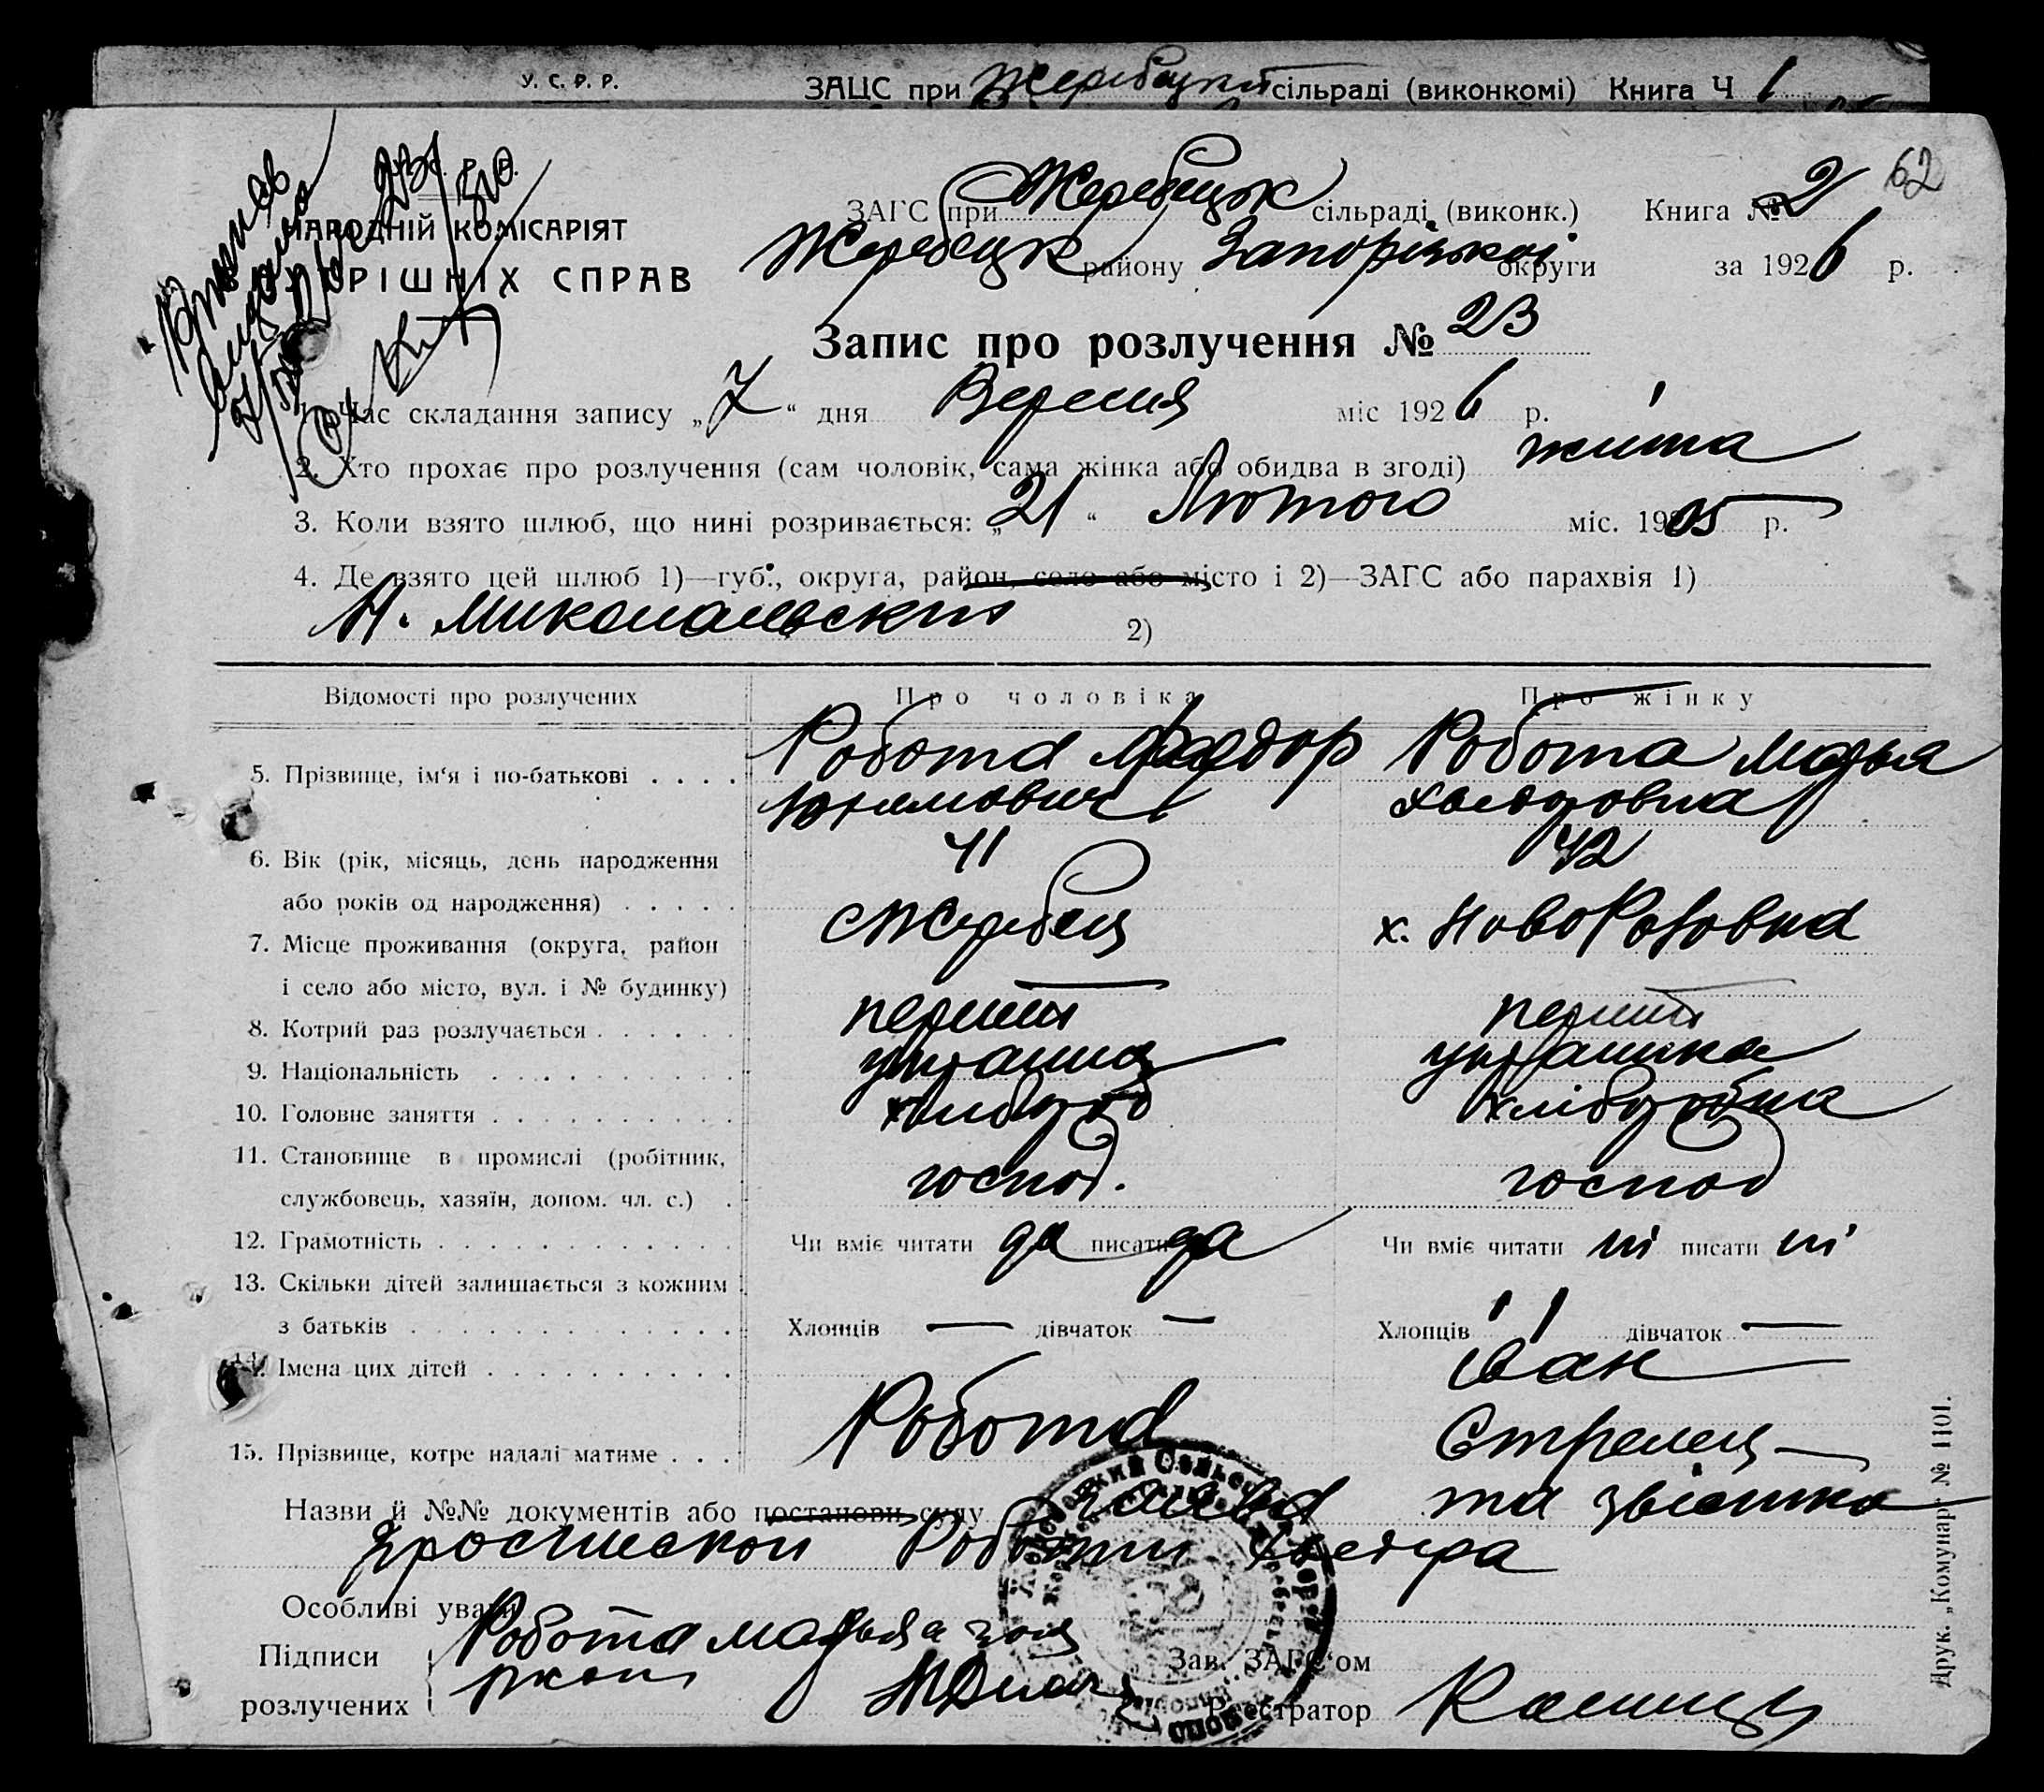 У. С. Р. Р. ЗАЦС при Жеребецкій сільраді (виконкомі) Книга Ч 1
62
ЗАГС при Жеребецьк сільраді (виконк.) Книга № 2
НАРОДНІЙ КОМІСАРІЯТ
Жеребецьк району Запорізької округи за 1926 р.
УНУТРІШНІХ СПРАВ
Запис про розлучення № 23
1. Час складання запису „7“ дня Вересня міс 1926 р.
2. Хто прохає про розлучення (сам чоловік, сама жінка або обидва в згоді)
3. Коли взято шлюб, що нині розривається: „21“ Лютого міс. 1905 р.
4. Де взято цей шлюб 1)—губ., округа, район, село або місто і 2)—ЗАГС або парахвія 1)
2)
Відомості про розлучених Про чоловіка Про жінку
5. Прізвище, ім‘я і по-батькові . . . . Робота Федор Робота Марья
Юхимович Хведоровна
6. Вік (рік, місяць, день народження 41 42
або років од народження) . . . . .
7. Місце проживання (округа, район с Жеребец х. НовоРозовка
і село або місто, вул. і № будинку)
8. Котрий раз розлучається . . . . . . перший перший
9. Національність . . . . . . . . . . українец українка
10. Головне заняття . . . . . . . . . . хлібороб хліборобка
11. Становище в промислі (робітник,
службовець, хазяїн, допом. чл. с.) . господ. господ
12. Грамотність . . . . . . . . . . . . Чи вміє читати да писати да Чи вміє читати ні писати ні
13. Скільки дітей залишається з кожним
з батьків . . . . . . . . . . . . . Хлопців — дівчаток — Хлопців 1 дівчаток —
14. Імена цих дітей . . . . . . . . . . Іван
15. Прізвище, котре надалі матиме . . . Робота Стрелец
Назви й №№ документів або постанови суду заява та звістка
Роботи Хведора
Особливі уваги
Підписи Робота Марья а за неї
Зав. ЗАГС‘ом
розлучених
Реєстратор
Друк. „Комунар“ № 1101.